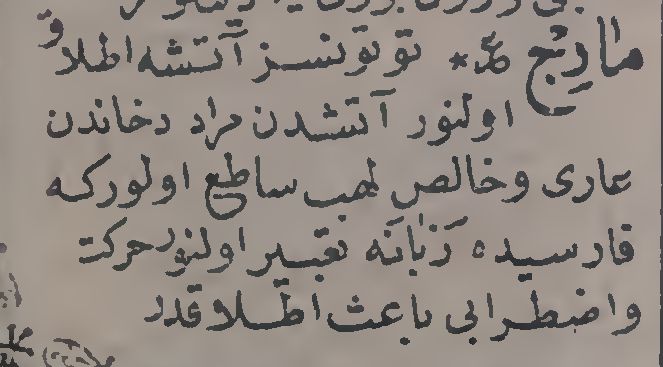 مَارِجْ * توتونسز آتشه اطلاق
اولنور آتشدن مراد دخاندن
عارى وخالص لهب ساطع اولوركه
فارسيده زَبَانَه تعبير اولنور حركت
واضطرابى باعث اطلاقدر